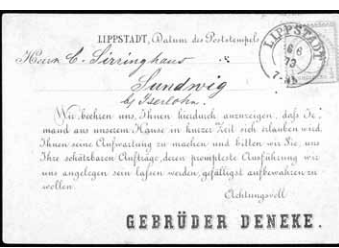 LIPPSTADT, Datum des Poststempels.
LIPPSTADT
6 6
73
7-8V
Herrn C. Sirringhaus
Sundwig
bei Iserlohn.
Wir beehren uns, Ihnen hierdurch anzuzeigen, daß Je-
mand aus unserem Hause in kurzer Zeit sich erlauben wird,
Ihnen seine Aufwartung zu machen und bitten wir Sie, uns
Ihre schätzbaren Aufträge, deren prompteste Ausführung wir
uns angelegen sein lassen werden, gefälligst aufbewahren zu
wollen.
Achtungsvoll
GEBRÜDER DENEKE.